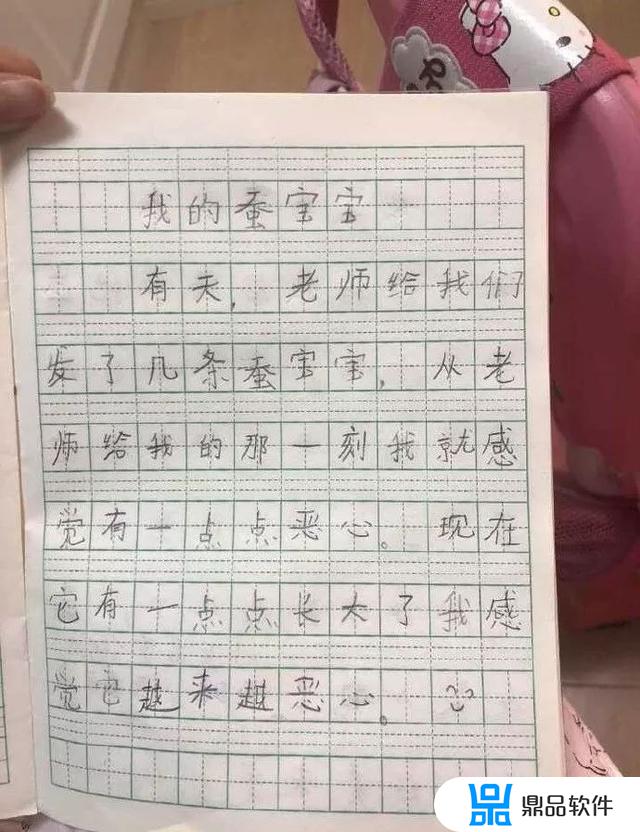 我的蚕宝宝
有天，老师给我们
发了几条蚕宝宝，从老
师给我的那一刻我就感
觉有一点点恶心。现在
它有一点点长大了我感
觉它越来越恶心。
鼎品软件